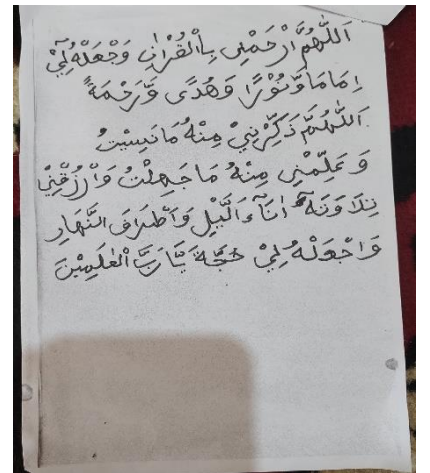 اَللّٰهُمَّ ارْحَمْنِى بِالْقُرْاٰنِ وَجْعَلْهُ لِيْ
اِمَامًا وَّنُوْرًا وَهُدًى وَّرَحْمَةً
اَللّٰهُمَّ ذَكِّرْنِيْ مِنْهُ مَا نَسِيْتُ
وَعَلِّمْنِى مِنْهُ مَا جَهِلْتُ وَارْزُقْنِيْ
تِلَاوَتَهٗ اٰنَآءَ الَّيْلِ وَاَطْرَافَ النَّهَارِ
وَاجْعَلْهُ لِيْ حُجَّةً يَّا رَبَّ الْعٰلَمِيْنَ